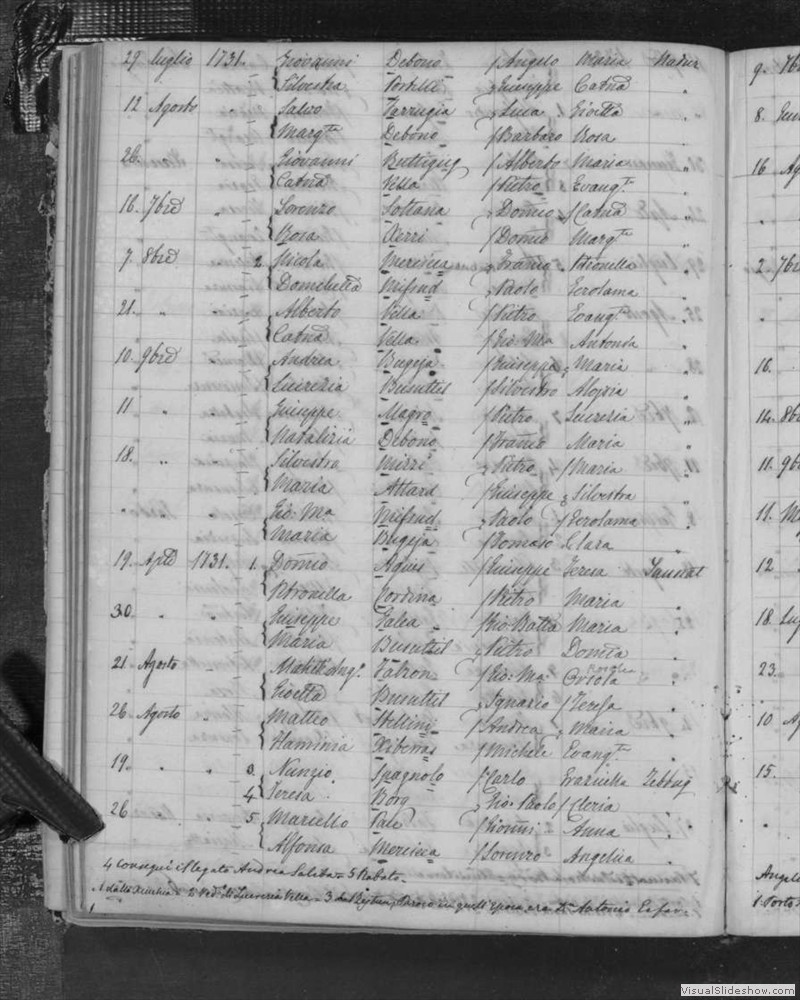 29 luglio 1731. Giovanni Debono / Angelo Maria Nadur
Silvestra Portelli Giuseppe Catna
12 Agosto " Salvo Farrugia Luca Gioetta
Margta Debono / Barbaro Rosa
26. Giovanni Buttigieg / Alberto Maria
Catna Vella / Pietro Evangta
16. 7bre Lorenzo Soltana Domco / Catna
Rosa Xerri / Domco Margta
7. 8bre 2 Nicola Mercieca Franco Petronella
Domenica Mifsud Paolo Gerolama
21. " Alberto Vella / Pietro Evangta
Catna Vella / Gio: Ma Antonia
10. 9bre Andrea Bugeja / Giuseppe Maria
Lucrezia Busuttil / Silvestro Aloysia
11 " Giuseppe Magro / Pietro Lucrezia
Natalizia Debono / Franco Maria
18. " Silvestro Mizzi Pietro / Maria
Maria Attard / Giuseppe Silvestra
Gio: Ma Mifsud Paolo / Gerolama
Maria Bugeja / Tomaso Clara
19. Aple 1731. 1. Domco Agius / Giuseppe Teresa Sannat
Petronella Cordina / Pietro Maria
30 " Giuseppe Galea / Gio: Batta Maria
Maria Busuttil Pietro Domca
21. Agosto Falzon / Gio: Ma Orsola
Gioetta Busuttil Ignazio / Teresa
26. Agosto " Matteo Stellini / Andrea Maria
Flaminia Xiberras / Michele Evangta
19. " 3. Nunzio Spagnolo / Carlo Graziella Zebbug
4 Teresa Borg Gio: Paolo / Cleria
26 5 Marcello Pace / Gionni Anna
Alfonsa Mercieca / Lorenzo Angelica
4 Andrea Saliba - 5 Rabato
2 Ved. di Lucrezia Vella - 3 in quell'epoca era Dn Antonio
9. 7b
8.
16 Ag
2. 7b
16.
14. 8b
11. 9b
11. M
12
18. Lug
23.
10 Ag
15.
Angel
1. Porto
VisualSlideshow.com